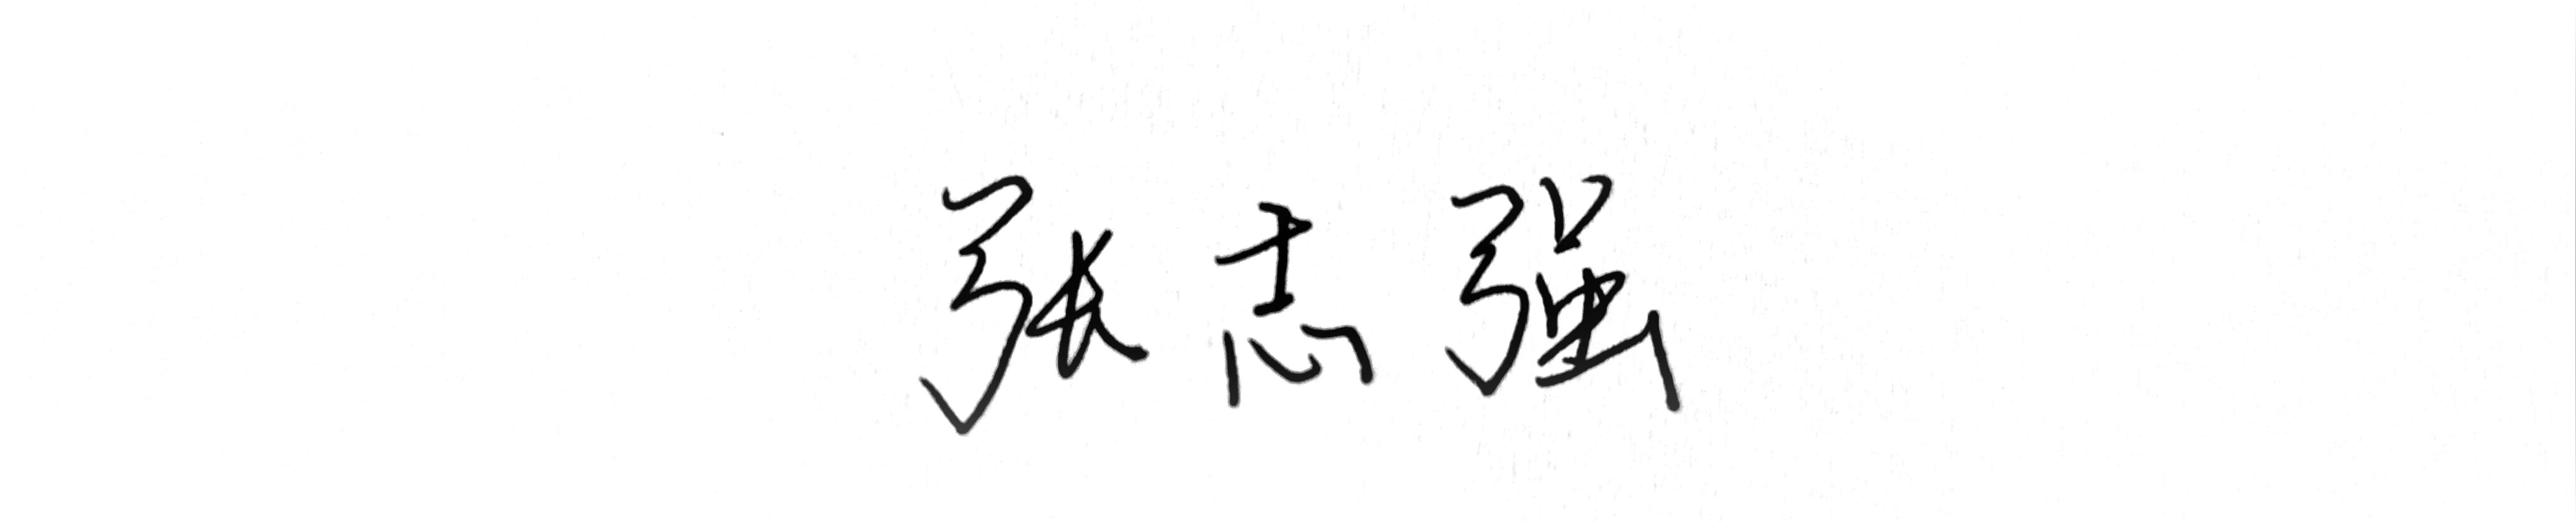 张志强